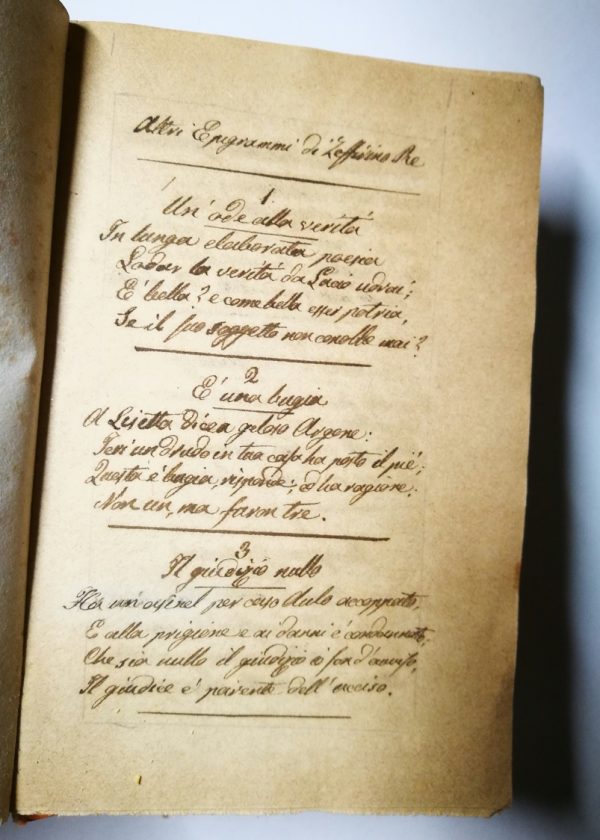 Altri Epigrammi di Zeffirino Re
1
Un' ode alla verità
In lunga elaborata poesia
Lodar la verità da Lacio udrai;
È bella? e come bella esser potria,
Se il suo soggetto non conobbe mai?
2
È una bugia
A Lisetta dicea geloso Argene:
Jeri un drudo in tua casa ha posto il piè;
Questa è bugia, risponde; ed ha ragione;
Non un, ma furon tre.
3
Il giudizio nullo
Ha un asinel per caso Aulo accoppato,
E alla prigione e ai danni è condannato;
Che sia nullo il giudizio io son d'avviso,
Il giudice è parente dell' ucciso.